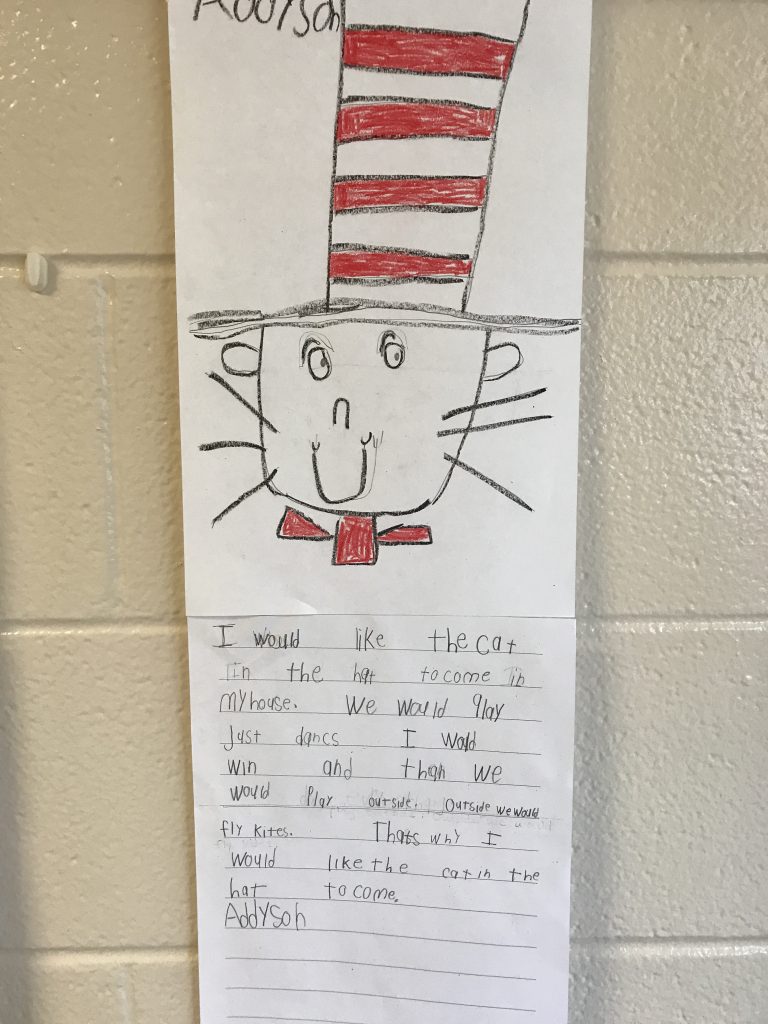 Addyson
I would like the cat
in the hat to come in
my house. We would Play
Just dancs I wold
win and than we
would Play outside. Outside we would
fly kites. Thats why I
would like the cat in the
hat to come.
Addyson